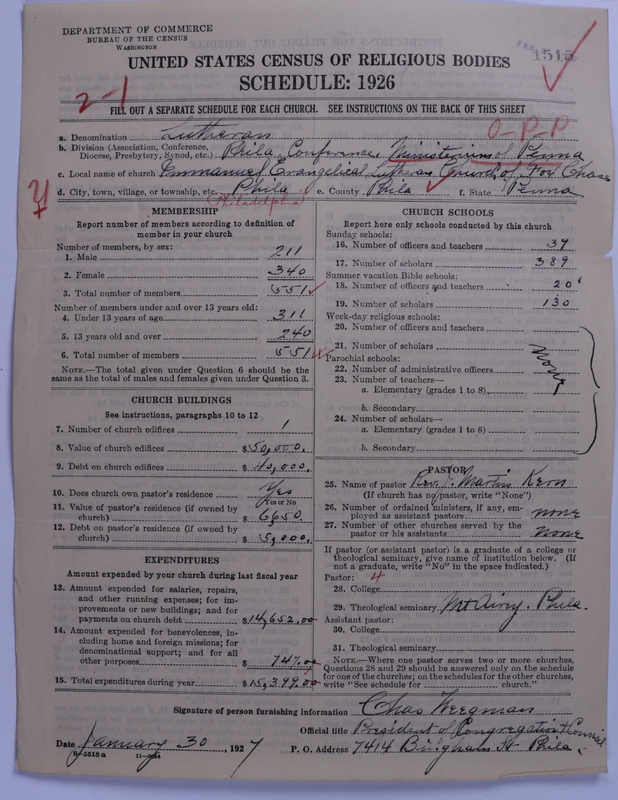 DEPARTMENT OF COMMERCE
BUREAU OF THE CENSUS
WASHINGTON
1515
UNITED STATES CENSUS OF RELIGIOUS BODIES
SCHEDULE: 1926
2-1
FILL OUT A SEPARATE SCHEDULE FOR EACH CHURCH. SEE INSTRUCTIONS ON THE BACK OF THIS SHEET
O-P-P
a. Denomination Lutheran
b. Division (Association, Conference, Diocese, Presbytery, Synod, etc.) Phila. Conference, Ministerium of Penna
c. Local name of church Emmanuel Evangelical Lutheran Church of Fox Chase
d. City, town, village, or township, etc. Phila e. County Phila f. State Penna
Philadelphia
MEMBERSHIP
Report number of members according to definition of
member in your church
Number of members, by sex:
1. Male 211
2. Female 340
3. Total number of members 551
Number of members under and over 13 years old:
4. Under 13 years of age 311
5. 13 years old and over 240
6. Total number of members 551
NOTE.—The total given under Question 6 should be
same as the total of males and females given under Question 3.
CHURCH BUILDINGS
See instructions, paragraphs 10 to 12
7. Number of church edifices 1
8. Value of church edifices $50,000.
9. Debt on church edifices $10,000.
10. Does church own pastor's residence Yes
(Yes or No)
11. Value of pastor's residence (if owned by
church) $6,650.
12. Debt on pastor's residence (if owned by
church) $5,000.
EXPENDITURES
Amount expended by your church during last fiscal year
13. Amount expended for salaries, repairs,
and other running expenses; for im-
provements or new buildings; and for
payments on church debt $14,652.00
14. Amount expended for benevolences, in-
cluding home and foreign missions; for
denominational support; and for all
other purposes $747.00
15. Total expenditures during year $15,399.00
CHURCH SCHOOLS
Report here only schools conducted by this church
Sunday schools:
16. Number of officers and teachers 37
17. Number of scholars 389
Summer vacation Bible schools:
18. Number of officers and teachers 20
19. Number of scholars 130
Week-day religious schools:
20. Number of officers and teachers
21. Number of scholars
Parochial schools:
22. Number of administrative officers
23. Number of teachers—
a. Elementary (grades 1 to 8)
b. Secondary
24. Number of scholars—
a. Elementary (grades 1 to 8)
b. Secondary
None
PASTOR
25. Name of pastor Rev. J. Martin Kern
(If church has no pastor, write "None")
26. Number of ordained ministers, if any, em-
ployed as assistant pastors none
27. Number of other churches served by the
pastor or his assistants none
If pastor (or assistant pastor) is a graduate of a college or
theological seminary, give name of institution below. (If
not a graduate, write "No" in the space indicated.)
Pastor: 4
28. College
29. Theological seminary Mt Airy. Phila.
Assistant pastor:
30. College
31. Theological seminary
NOTE.—Where one pastor serves two or more churches,
Questions 28 and 29 should be answered only on the schedule
for one of the churches; on the schedules for the other churches,
write "See schedule for church."
Signature of person furnishing information Chas Weegman
Official title President of Congregation & Council
Date January 30, 1927 P. O. Address 7414 Bingham St. Phila.
8-5518 a 11-9024